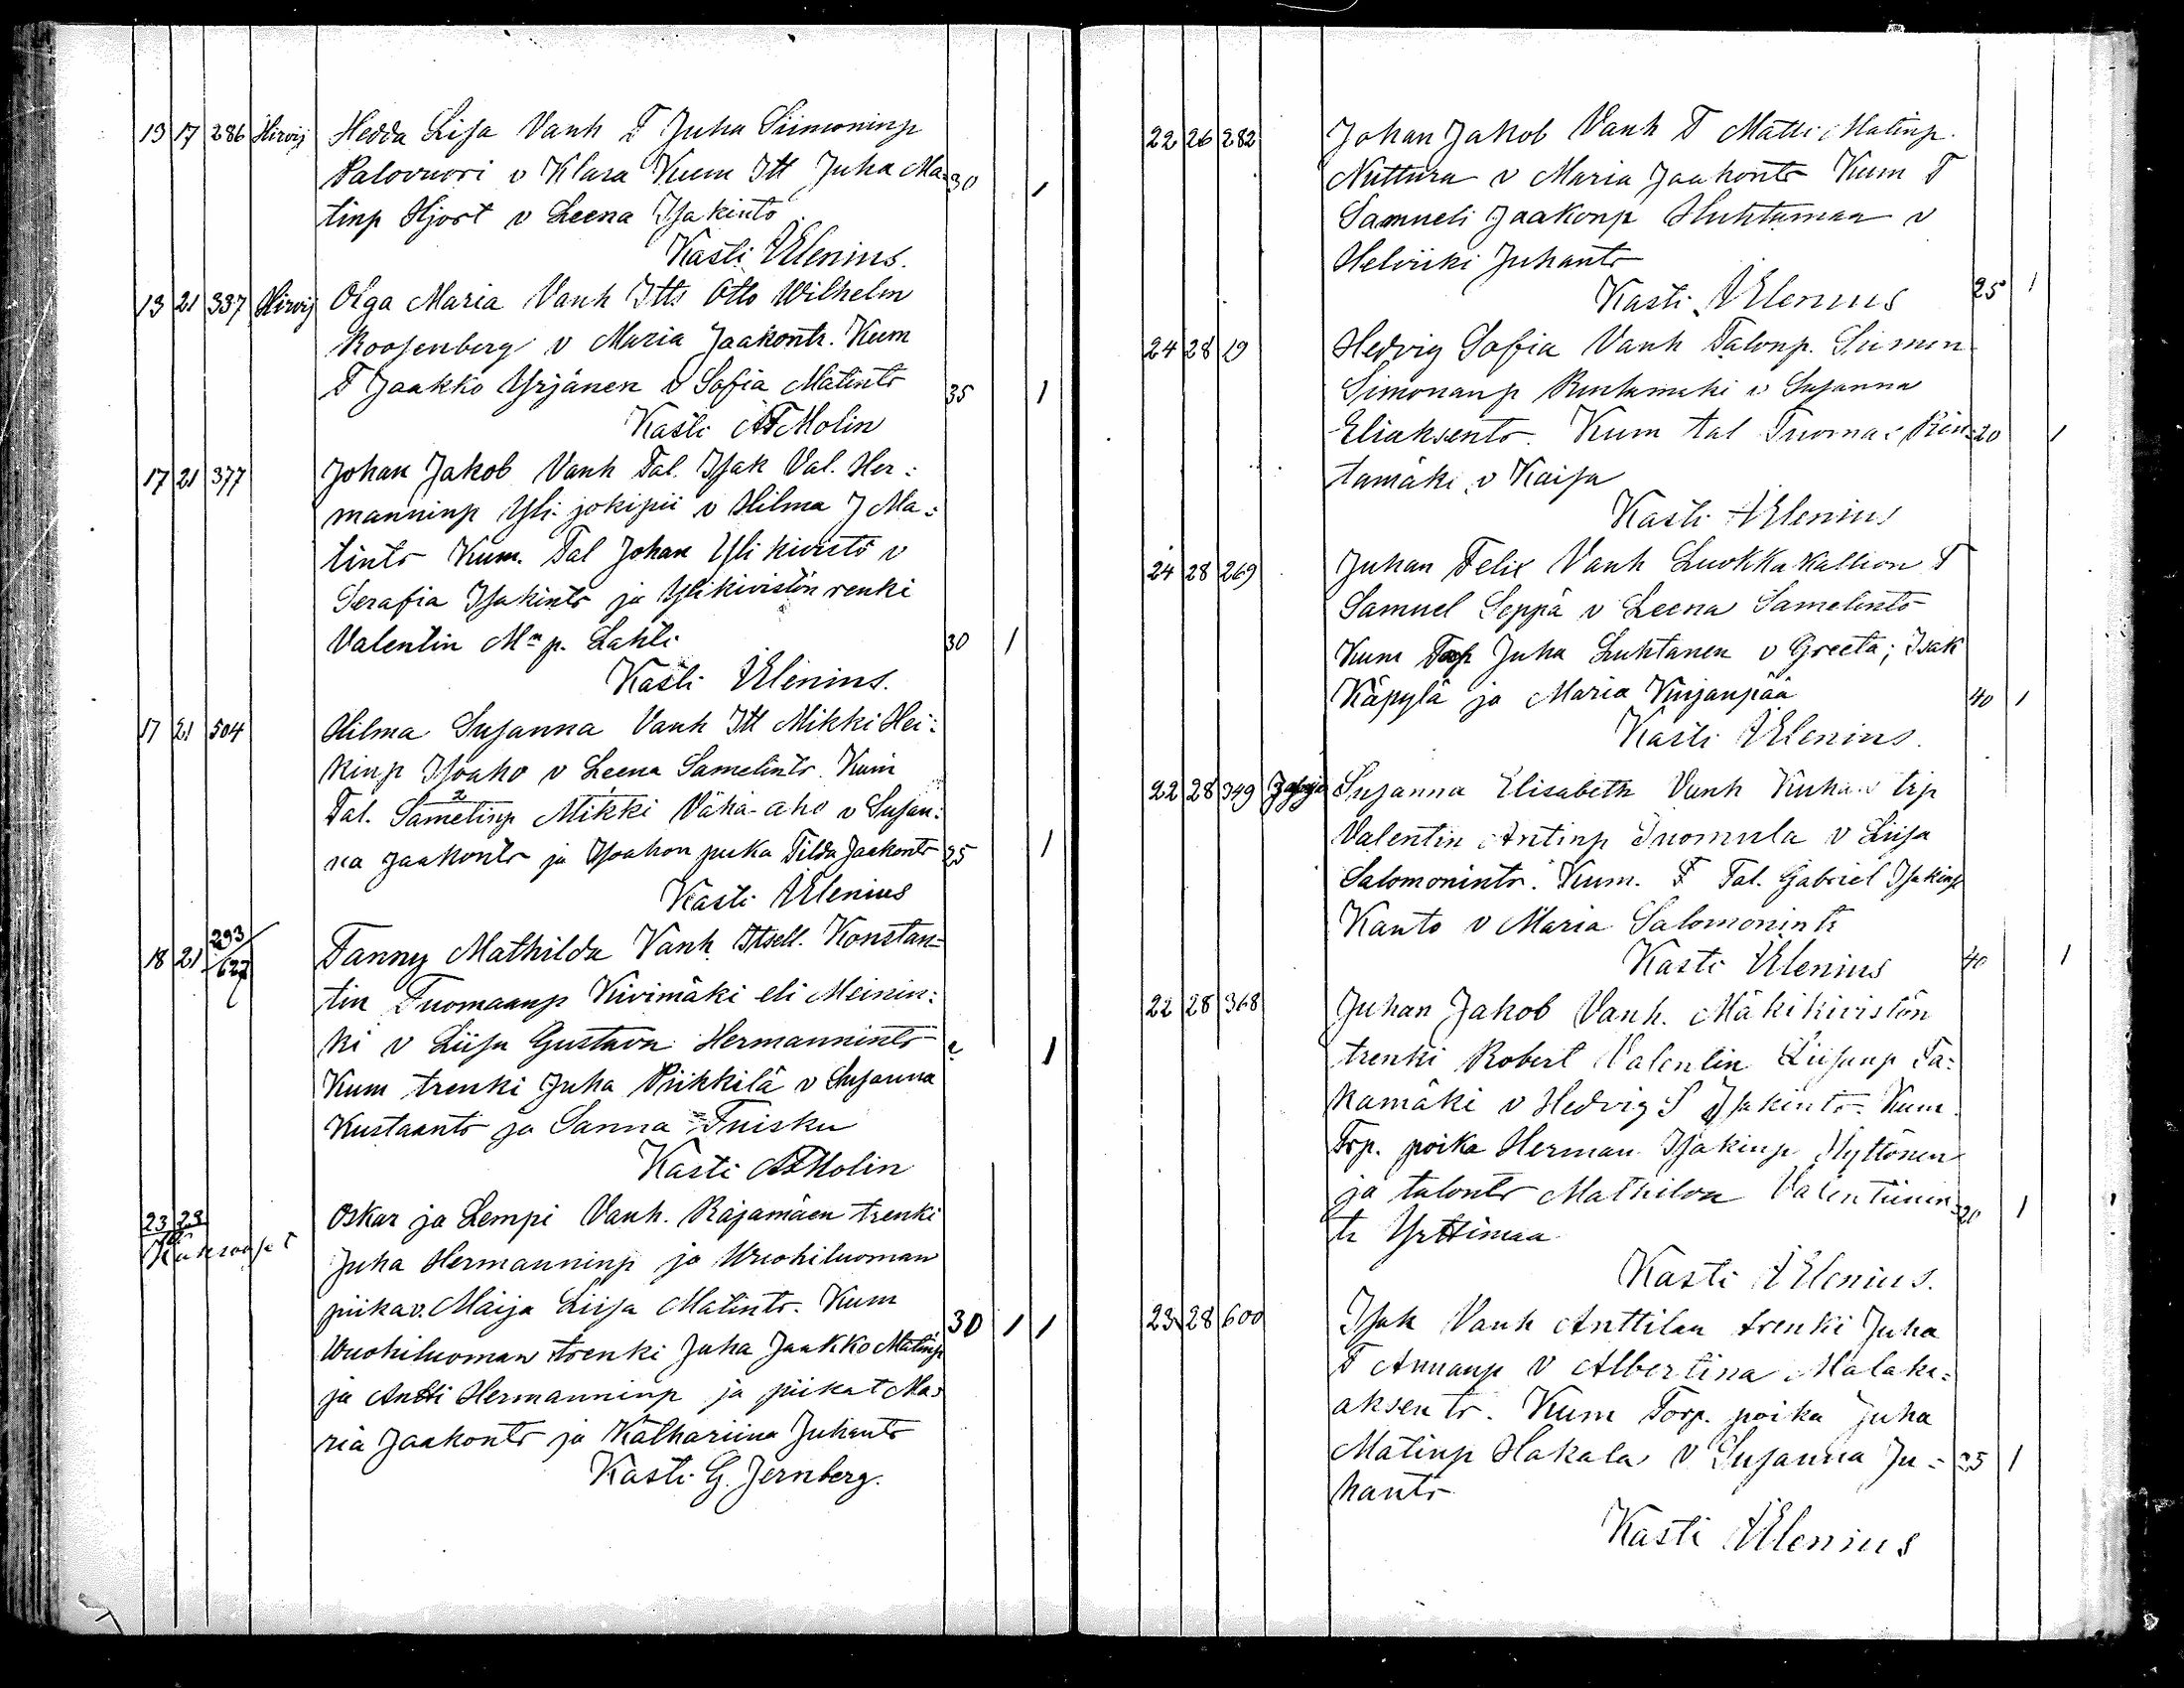 13 17 286 Hirvij Hedda Lisa Vanh T Juha Siimoninp
Palovuori v Klara Kum Itt Juha Ma= 30 1
tinp Hjort v Leena Isakintr
Kasti AElenius.
13 21 337 Hirvij Olga Maria Vanh Itts Otto Wilhelm
Roosenberg v Maria Jaakontr. Kum
T Jaakko Yrjänen v Sofia Matintr 35 1
Kasti AF Molin
17 21 377 Johan Jakob Vanh Tal. Isak Val. Her=
manninp Yli-jokipii v Hilma J Ma=
tintr Kum. Tal Johan Ylikivistö v
Serafia Isakintr ja Ylikivistön renki
Valentin Mn p. Lahti 30 1
Kasti AElenius.
17 21 504 Hilma Susanna Vanh Itt Mikki Hei=
kinp Isoaho v Leena Samelintr. Kum
Tal. Samelinp Mikki Vähä-aho v Susan=
na Jaakontr ja Isoahon piika Tilda Jaakontr 25 1
Kasti AElenius
18 21 293/627 Fanny Mathilda Vanh Itsell. Konstan=
tin Tuomaanp Kivimäki eli Meinin=
ki v Liisa Gustava Hermannintr 1
Kum trenki Juha Piikkilä v Susanna
Kustaantr ja Sanna Tuisku
Kasti AF Molin
23 23 Oskar ja Lempi Vanh. Rajamäen trenki
Kaksoiset Juha Hermanninp ja Wuohiluoman
piika v. Maija Liisa Matintr. Kum
Wuohiluoman trenki Juha Jaakko Matinp 30 1 1
ja Antti Hermanninp ja piikat Ma=
ria Jaakontr ja Kathariina Juhantr
Kasti G. Jernberg.
22 26 282 Johan Jakob Vanh T Matti Matinp.
Nuttura v Maria Jaakontr Kum T
Samueli Jaakonp Huhtamaa v
Helviiki Juhantr
Kasti AElenius 25 1
24 28 19 Hedvig Sofia Vanh Talonp. Siimon
Simonanp Rintamäki v Susanna
Eliaksentr. Kum tal Tuomas Rin= 20 1
tamäki v Kaisa
Kasti AElenius
24 28 269 Juhan Felix Vanh Luokkakallion T
Samuel Seppä v Leena Samelintr
Kum Torp Juha Luhtanen v Greeta; Isak
Käpylä ja Maria Kujanpää 40 1
Kasti AElenius.
22 28 349 Susanna Elisabeth Vanh trp
Valentin Antinp Tuomula v Liisa
Salomonintr. Kum. T Tal. Gabriel Isakinp
Kanto v Maria Salomonintr
Kasti AElenius 40 1
22 28 368 Juhan Jakob Vanh. Mäkikivistön
trenki Robert Valentin Liisanp Ta=
kamäki v Hedvig S Isakintr Kum
Trp. poika Herman Isakinp Hyttönen
ja talontr Mathilda Valentiinin= 20 1
tr Yrttimaa
Kasti AElenius.
23 28 600 Isak Vanh Anttilan trenki Juha
T Annanp v Albertina Malaki=
aksentr. Kum Torp. poika Juha
Matinp Hakala v Susanna Ju= 25 1
hantr
Kasti AElenius